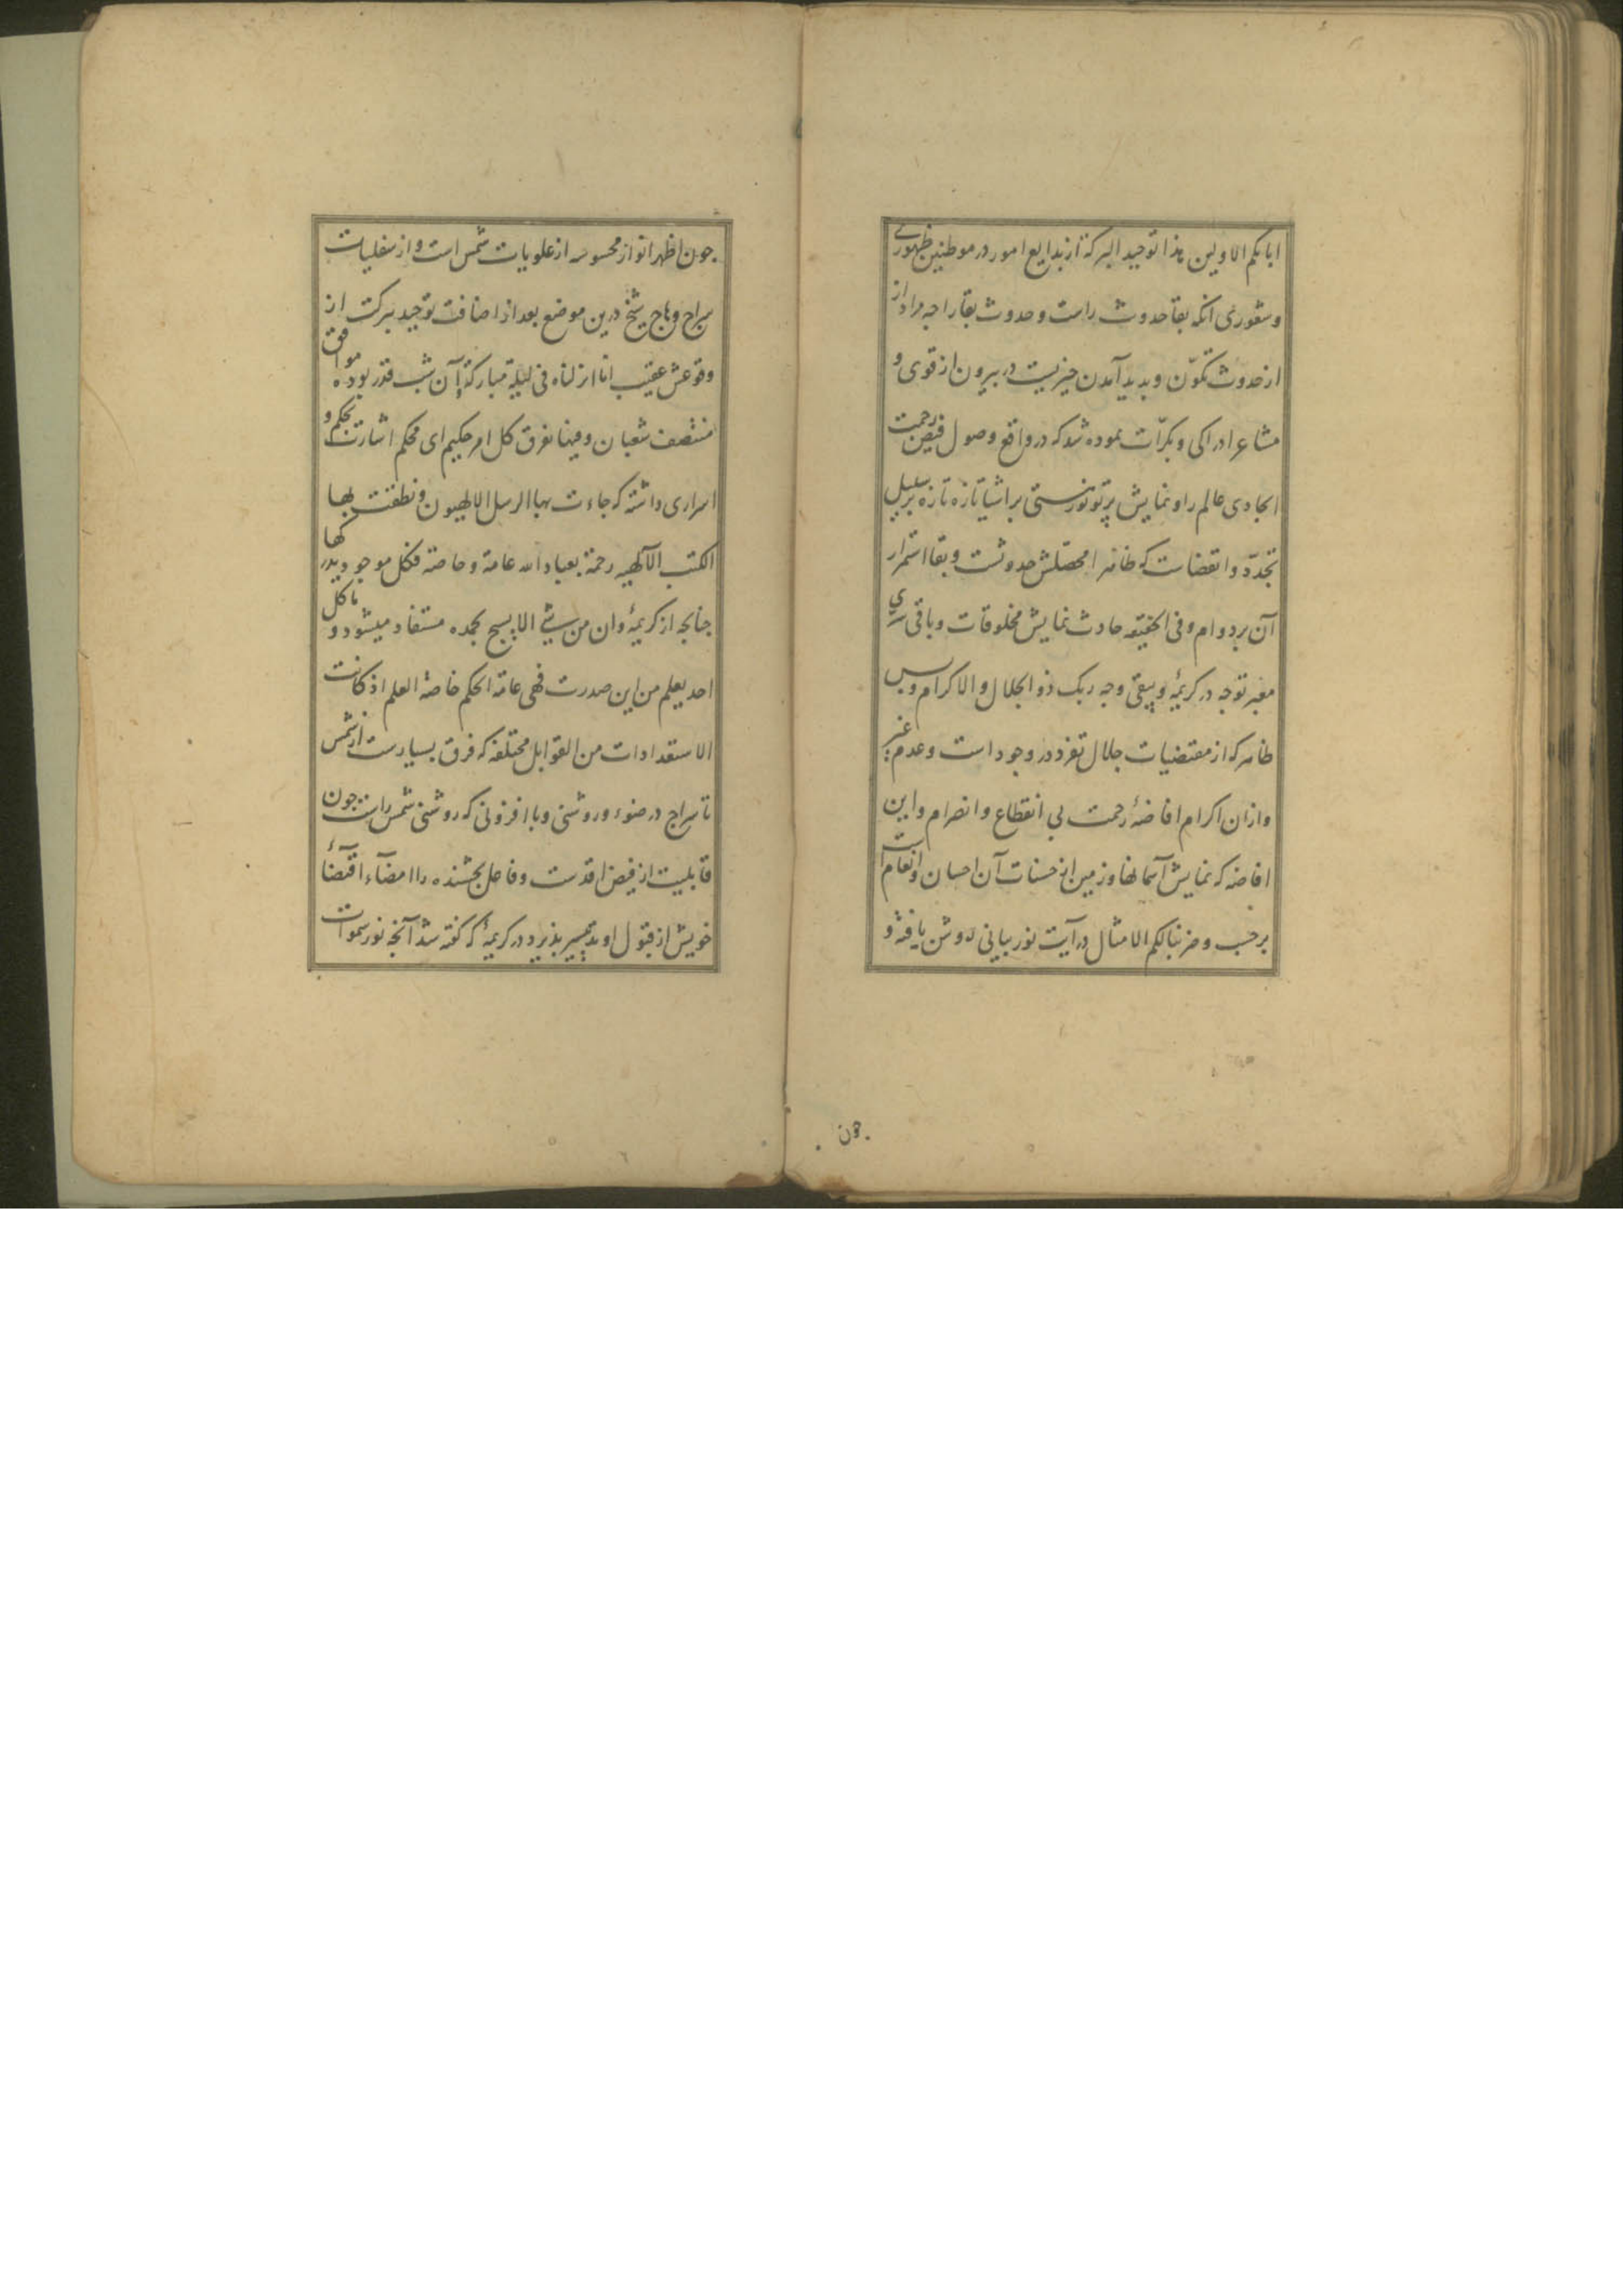 ابایکم الاولین هذا توحید البرکة از بدایع امور در موطنین ظهوری
و شعوری آنکه بقا حدوث راست و حدوث بقا را چه مراد از
از حدوث تکوّن و پدید آمدن چیزیست در بیرون از قوی و
مشاعر ادراکی و بکرّات نموده شد که در واقع وصول فیض رحمت
ایجادی عالم را و نمایش پرتو نور هستی بر اشیا تازه تازه بر سبیل
تجدّد و انقضاست که ظاهرا محصّلش حدوثست و بقا استمرار
آن بر دوام و فی الحقیقه حادث نمایش مخلوقات و باقی سری
معبر توجه در کریمهٔ و یبقی وجه ربک ذو الجلال و الاکرام و بس
ظاهر که از مقتضیات جلال تفرد در وجود است و عدم غیر
و ازان اکرام افاضهٔ رحمت بی انقطاع و انصرام و این
افاضه که نمایش آسمانها و زمین از حسنات آن احسان و انعام است
برحسب و ضربنا لکم الامثال در آیت نور بیانی روشن یافته و
چون
چون اظهر انواز محسوسه از علویات شمس است و از سفلیات
سراج وهاج شیخ درین موضع بعد از اضافت توحید ببرکت از
وقوعش عقیب انا انزلناه فی لیلة مبارکة آن شب قدر بوده موافق
منتصف شعبان و فیها یفرق کل امر حکیم ای محکم اشارت بحکم و
اسراری داشته که جاءت بها الرسل الالهیون و نطقت بها
الکتب الآلهیه رحمة بعباد الله عامة و خاصة فکل موجود یدرکها
چنانچه از کریمهٔ و ان من شیئ الا یسبح بحمده مستفاد میشود و ما کل
احد یعلم من این صدرت فهی عامة الحکم خاصة العلم اذ کانت
الاستعدادات من القوابل مختلفه که فرق بسیارست از شمس
تا سراج در ضوء و روشنی و با افزونی که روشنی شمس راست چون
قابلیت از فیض اقدست و فاعل بخشنده را امضآء اقتضآء
خویش از قبول او بتیسیر پذیرد در کریمهٔ که گفته شد آنچه نور سموات